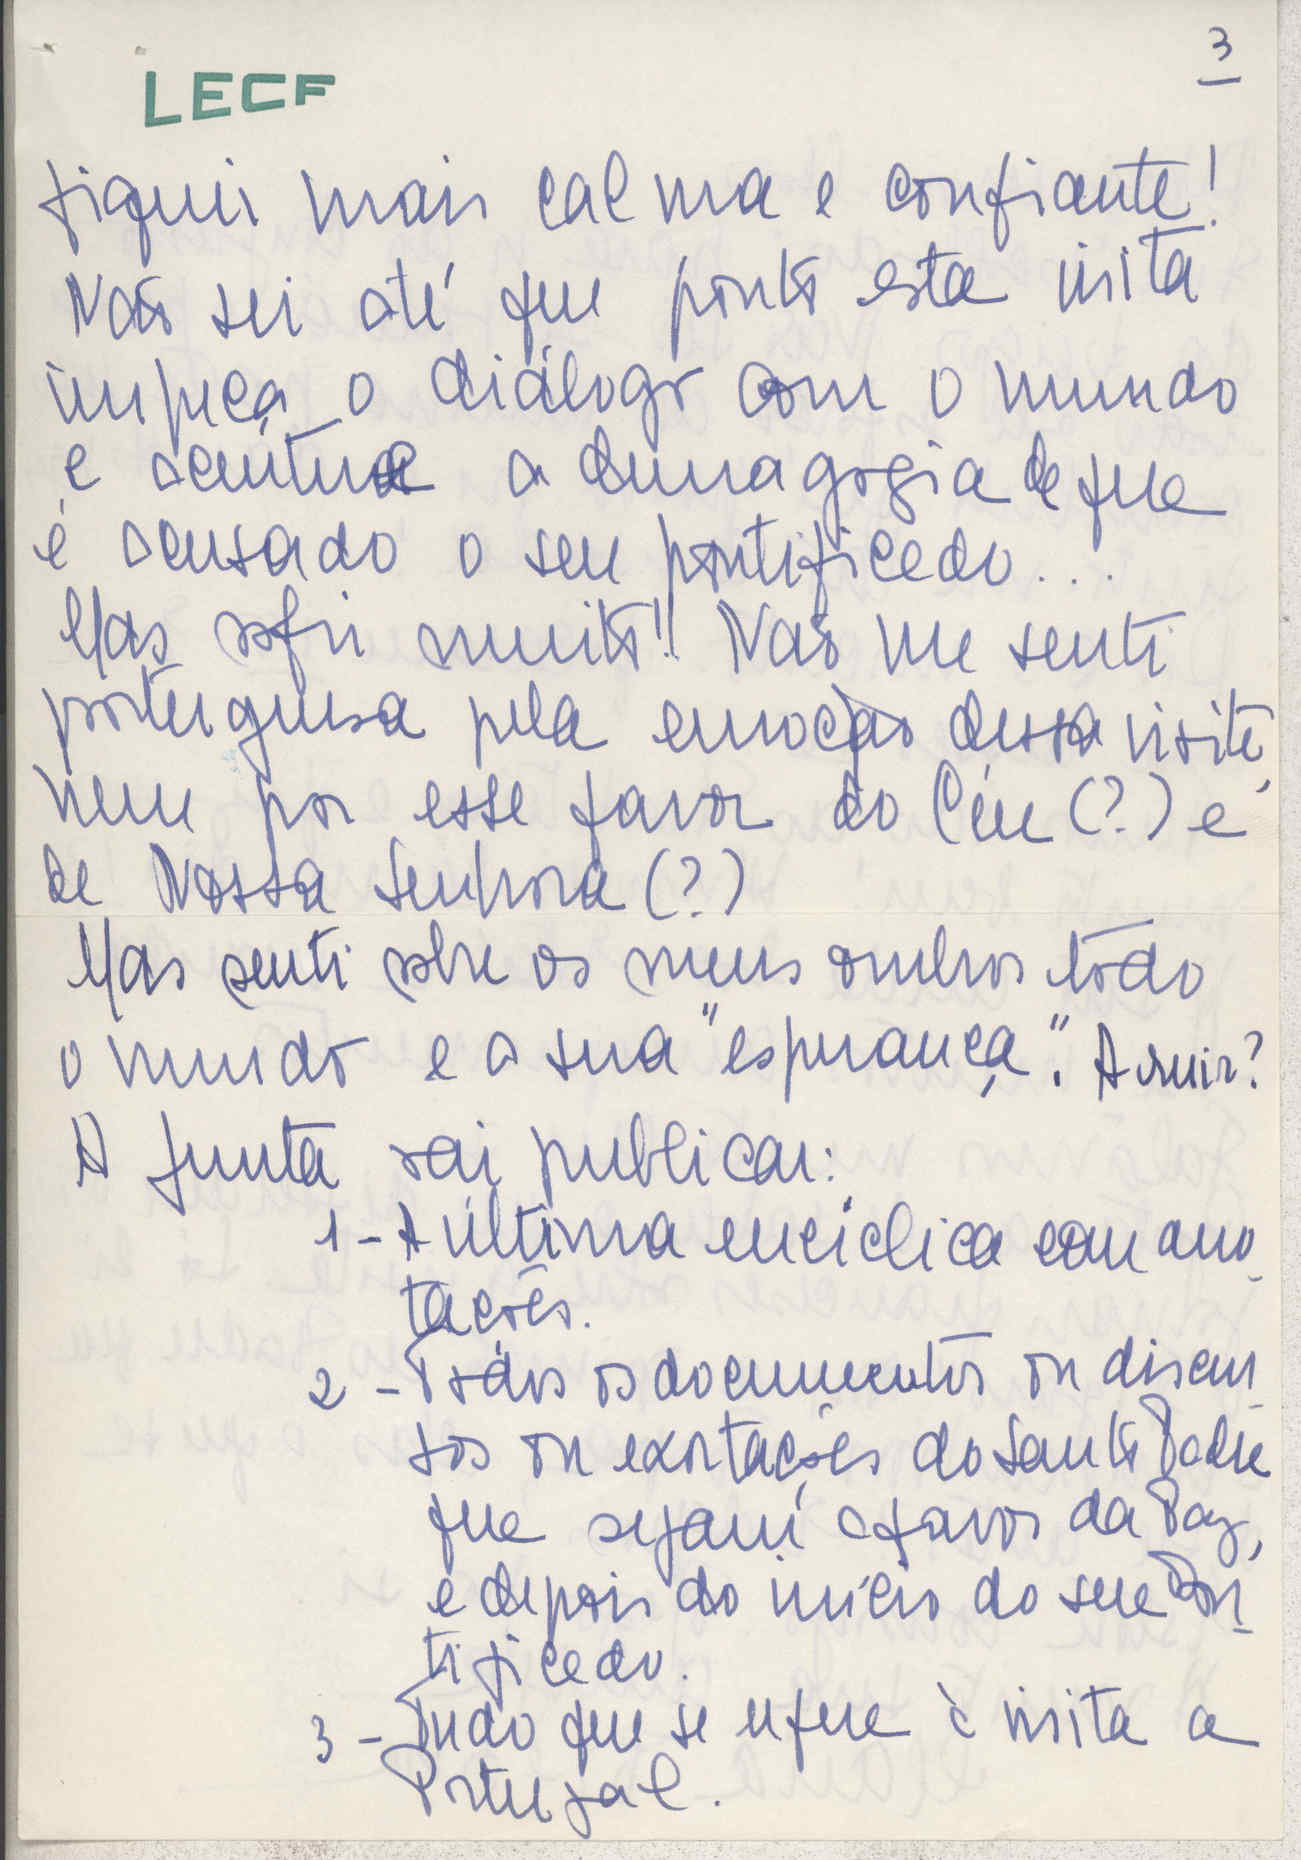 3
LECF
fiquei mais calma e confiante!
Não sei até que ponto esta visita
impeça o diálogo com o mundo
e acentue a demagogia de que
é acusado o seu pontificado...
Mas sofri muito!! Não me senti
portuguesa pela emoção dessa visita,
nem por esse favor do Céu (?) e
de Nossa Senhora (?)
Mas senti sôbre os meus ombros todo
o mundo e a sua "esperança". A ruir?
A Junta vai publicar:
1 - A última encíclica com ano-
tações.
2 - Todos os documentos ou discur-
sos ou exortações do Santo Padre
que sejam a favor da Paz,
e depois do início do seu Pon-
tificado.
3 - Tudo que se refere à visita a
Portugal.